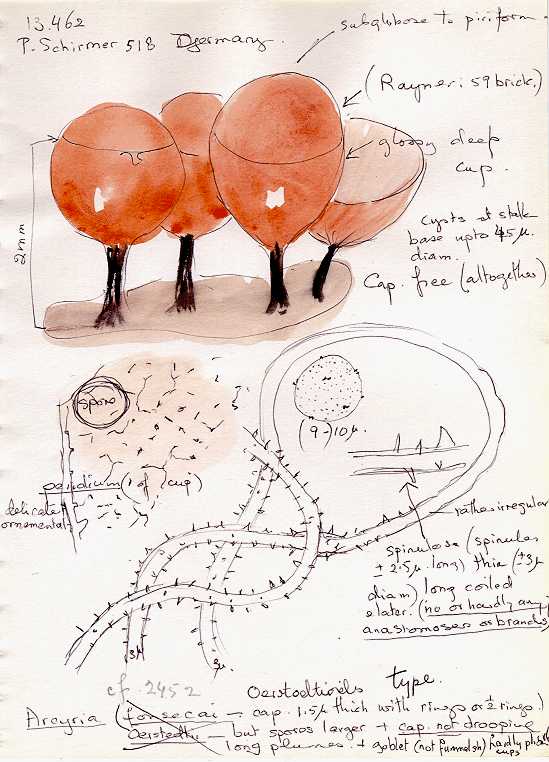 13.462
P. Schirmer 518 Germany.
subglobose to piriform.
(Rayner: 59 brick.)
glossy deep
cup.
2mm
Cysts at stalk
base upto 45µ
diam.
Cap. free (altogether)
spore
peridium (of cup)
delicate
ornamental
(9-)10µ.
rather irregular
spinulose (spinules
± 2.5µ long) thin (±3µ
diam) long coiled
elater. (no or hardly any
anastomoses or brands)
3µ
3µ
cf. 2452
type.
Arcyria (fonsecai - cap. 1.5µ thick with rings or ½ rings.)
Oerstedtii - but spores larger + cap. not drooping
long plumes. + goblet (not funnelsh) hardly
cups